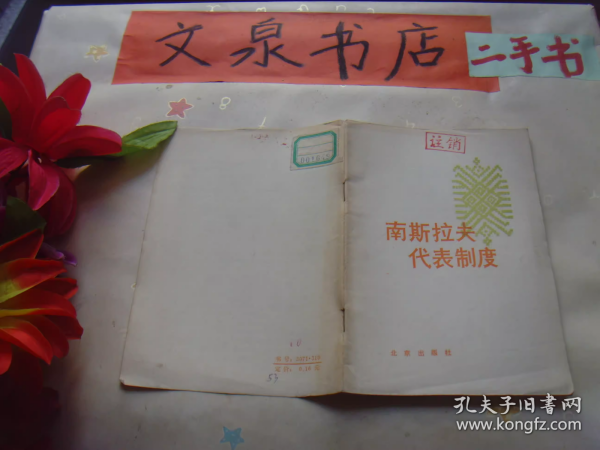 文泉书店
二手书
注销
南斯拉夫
代表制度
北京出版社
53
孔夫子旧书网
www.kongfz.com